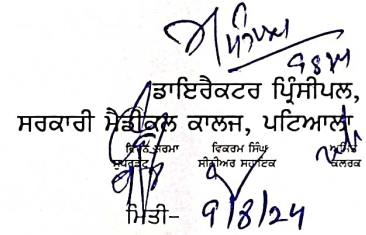 ਡਾਇਰੈਕਟਰ ਪ੍ਰਿੰਸੀਪਲ,
ਸਰਕਾਰੀ ਮੈਡੀਕਲ ਕਾਲਜ, ਪਟਿਆਲਾ
ਸ਼ਰਮਾ ਵਿਕਰਮ ਸਿੰਘ
ਸੁਪਰਡੰਟ ਸੀਨੀਅਰ ਸਹਾਇਕ ਕਲਰਕ
ਮਿਤੀ- 9/8/24